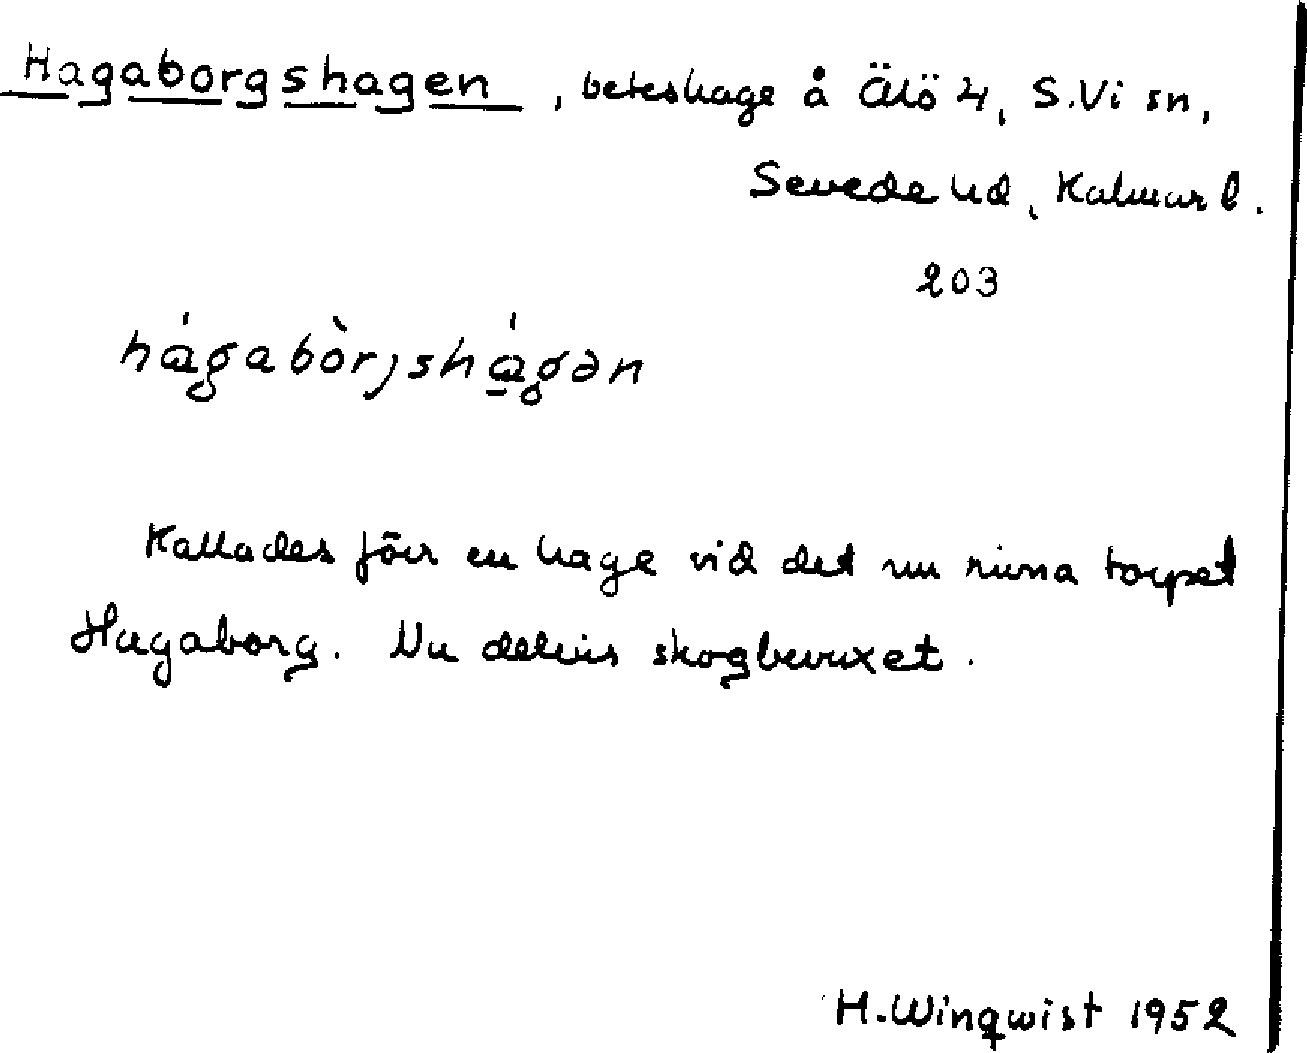 Hagaborgshagen, beteshage å Älö 4, S.Vi sn,
Sevede hd, Kalmar l.
203
hágabòrjshágən
Kallades förr en hage vid det nu rivna torpet
Hagaborg. Nu delvis skogbevuxet.
H.Winqwist 1952